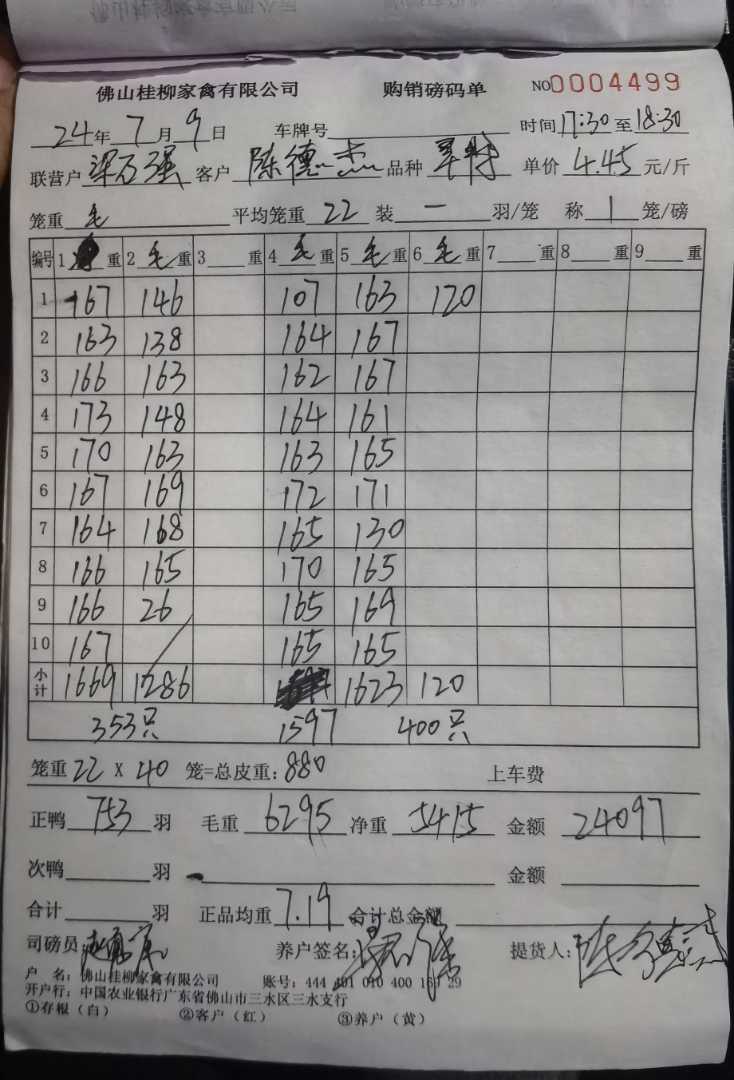 佛山桂柳家禽有限公司 购销磅码单 NO0004499
24年7月9日 车牌号 时间17:30至18:30
联营户 梁万强 客户 陈德杰 品种 单价 4.45 元/斤
笼重 毛 平均笼重 22 装 一 羽/笼 称 1 笼/磅
编号 1 重 2 毛 重 3 重 4 毛 重 5 毛 重 6 毛 重 7 重 8 重 9 重
1 167 146 107 163 120
2 163 138 164 167
3 166 163 162 167
4 173 148 164 161
5 170 163 163 165
6 167 169 172 171
7 164 168 165 130
8 166 165 170 165
9 166 26 165 169
10 167 165 165
小计 1669 1286 1623 120
353只 1597 400只
笼重 22 X 40 笼=总皮重: 880 上车费
正鸭 753 羽 毛重 6295 净重 5415 金额 24097
次鸭 羽 金额
合计 羽 正品均重 7.19 合计总金额
司磅员: 养户签名: 提货人:
户 名: 佛山桂柳家禽有限公司 账号: 444 401 010 400 29
开户行: 中国农业银行广东省佛山市三水区三水支行
①存根（白） ②客户（红） ③养户（黄）